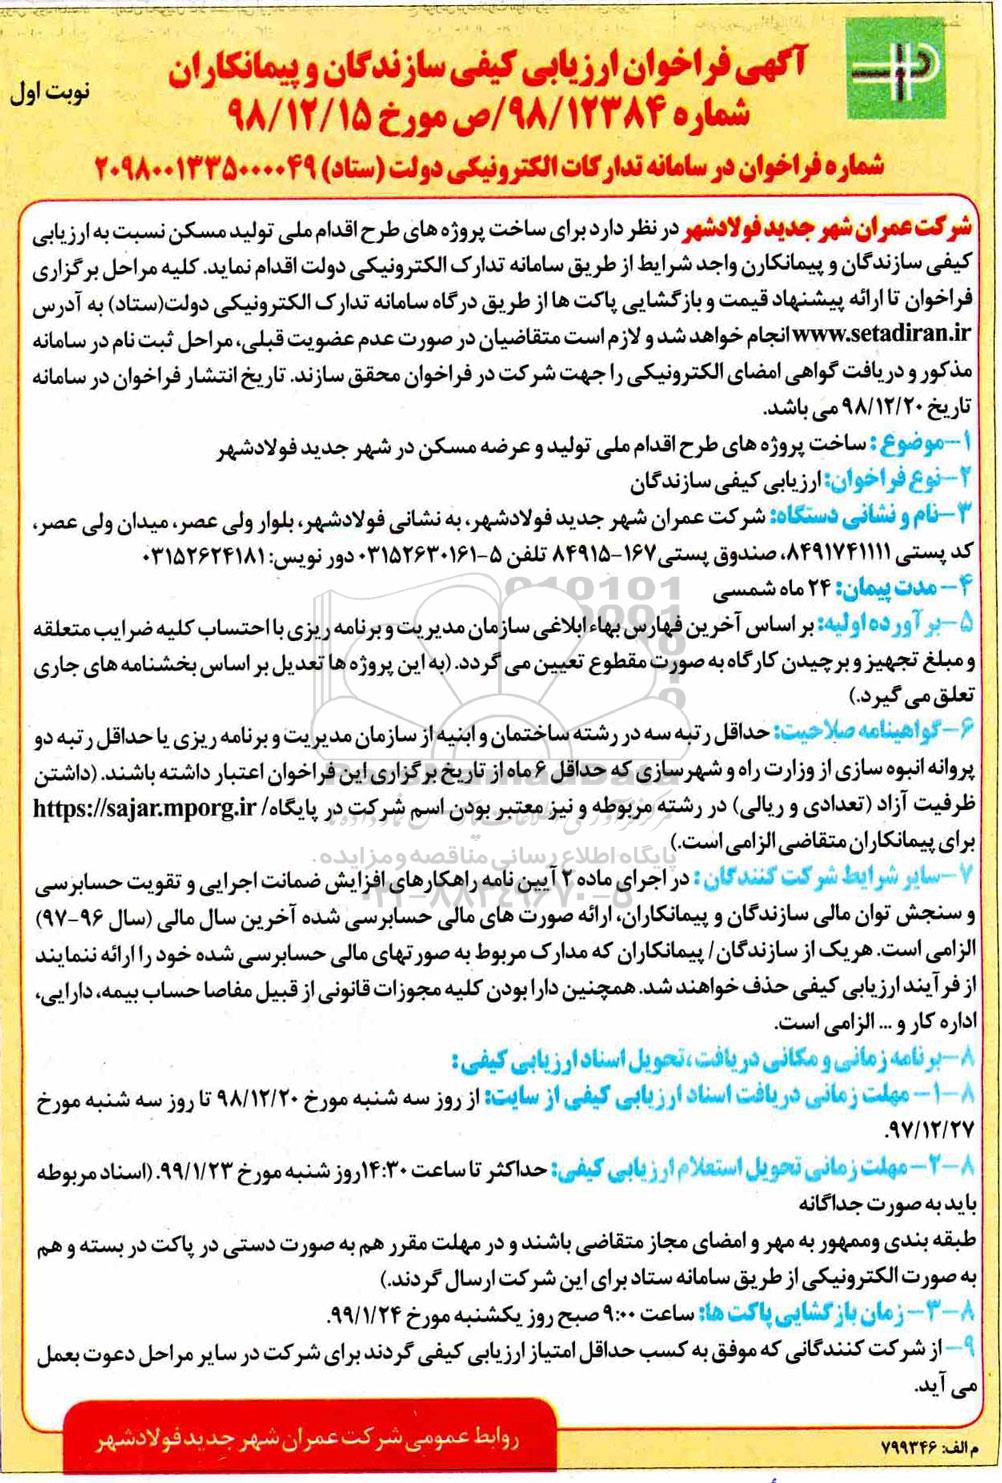 آگهی فراخوان ارزیابی کیفی سازندگان و پیمانکاران
نوبت اول
شماره ۹۸/۱۲۳۸۴/ص مورخ ۹۸/۱۲/۱۵
شماره فراخوان در سامانه تدارکات الکترونیکی دولت (ستاد) ۲۰۹۸۰۰۱۳۳۵۰۰۰۰۴۹
شرکت عمران شهر جدید فولادشهر در نظر دارد برای ساخت پروژه های طرح اقدام ملی تولید مسکن نسبت به ارزیابی
کیفی سازندگان و پیمانکارن واجد شرایط از طریق سامانه تدارک الکترونیکی دولت اقدام نماید. کلیه مراحل برگزاری
فراخوان تا ارائه پیشنهاد قیمت و بازگشایی پاکت ها از طریق درگاه سامانه تدارک الکترونیکی دولت(ستاد) به آدرس
www.setadiran.ir انجام خواهد شد و لازم است متقاضیان در صورت عدم عضویت قبلی، مراحل ثبت نام در سامانه
مذکور و دریافت گواهی امضای الکترونیکی را جهت شرکت در فراخوان محقق سازند. تاریخ انتشار فراخوان در سامانه
تاریخ ۹۸/۱۲/۲۰ می باشد.
۱-موضوع: ساخت پروژه های طرح اقدام ملی تولید و عرضه مسکن در شهر جدید فولادشهر
۲-نوع فراخوان: ارزیابی کیفی سازندگان
۳-نام و نشانی دستگاه: شرکت عمران شهر جدید فولادشهر، به نشانی فولادشهر، بلوار ولی عصر، میدان ولی عصر،
کد پستی ۸۴۹۱۷۴۱۱۱۱، صندوق پستی ۱۶۷-۸۴۹۱۵ تلفن ۵-۰۳۱۵۲۶۳۰۱۶۱ دور نویس: ۰۳۱۵۲۶۲۴۱۸۱
۴- مدت پیمان: ۲۴ ماه شمسی
۵-برآورده اولیه: بر اساس آخرین فهارس بهاء ابلاغی سازمان مدیریت و برنامه ریزی با احتساب کلیه ضرایب متعلقه
و مبلغ تجهیز و برچیدن کارگاه به صورت مقطوع تعیین می گردد. (به این پروژه ها تعدیل بر اساس بخشنامه های جاری
تعلق می گیرد.)
۶-گواهینامه صلاحیت: حداقل رتبه سه در رشته ساختمان و ابنیه از سازمان مدیریت و برنامه ریزی یا حداقل رتبه دو
پروانه انبوه سازی از وزارت راه و شهرسازی که حداقل ۶ ماه از تاریخ برگزاری این فراخوان اعتبار داشته باشند. (داشتن
ظرفیت آزاد (تعدادی و ریالی) در رشته مربوطه و نیز معتبر بودن اسم شرکت در پایگاه/ https://sajar.mporg.ir
برای پیمانکاران متقاضی الزامی است.)
پایگاه اطلاع رسانی مناقصه و مزایده
۷-سایر شرایط شرکت کنندگان: در اجرای ماده ۲ آیین نامه راهکارهای افزایش ضمانت اجرایی و تقویت حسابرسی
۰۲۱-۸۸۳۴۹۶۷۰-۵
و سنجش توان مالی سازندگان و پیمانکاران، ارائه صورت های مالی حسابرسی شده آخرین سال مالی (سال ۹۶-۹۷)
الزامی است. هریک از سازندگان/ پیمانکاران که مدارک مربوط به صورتهای مالی حسابرسی شده خود را ارائه ننمایند
از فرآیند ارزیابی کیفی حذف خواهند شد. همچنین دارا بودن کلیه مجوزات قانونی از قبیل مفاصا حساب بیمه، دارایی،
اداره کار و ... الزامی است.
۸-برنامه زمانی و مکانی دریافت، تحویل اسناد ارزیابی کیفی:
۸-۱- مهلت زمانی دریافت اسناد ارزیابی کیفی از سایت: از روز سه شنبه مورخ ۹۸/۱۲/۲۰ تا روز سه شنبه مورخ
۹۷/۱۲/۲۷.
۸-۲- مهلت زمانی تحویل استعلام ارزیابی کیفی: حداکثر تا ساعت ۱۴:۳۰ روز شنبه مورخ ۹۹/۱/۲۳. (اسناد مربوطه
باید به صورت جداگانه
طبقه بندی وممهور به مهر و امضای مجاز متقاضی باشند و در مهلت مقرر هم به صورت دستی در پاکت در بسته و هم
به صورت الکترونیکی از طریق سامانه ستاد برای این شرکت ارسال گردند.)
۸-۳- زمان بازگشایی پاکت ها: ساعت ۹:۰۰ صبح روز یکشنبه مورخ ۹۹/۱/۲۴.
۹- از شرکت کنندگانی که موفق به کسب حداقل امتیاز ارزیابی کیفی گردند برای شرکت در سایر مراحل دعوت بعمل
می آید.
روابط عمومی شرکت عمران شهر جدید فولادشهر
م الف: ۷۹۹۳۴۶